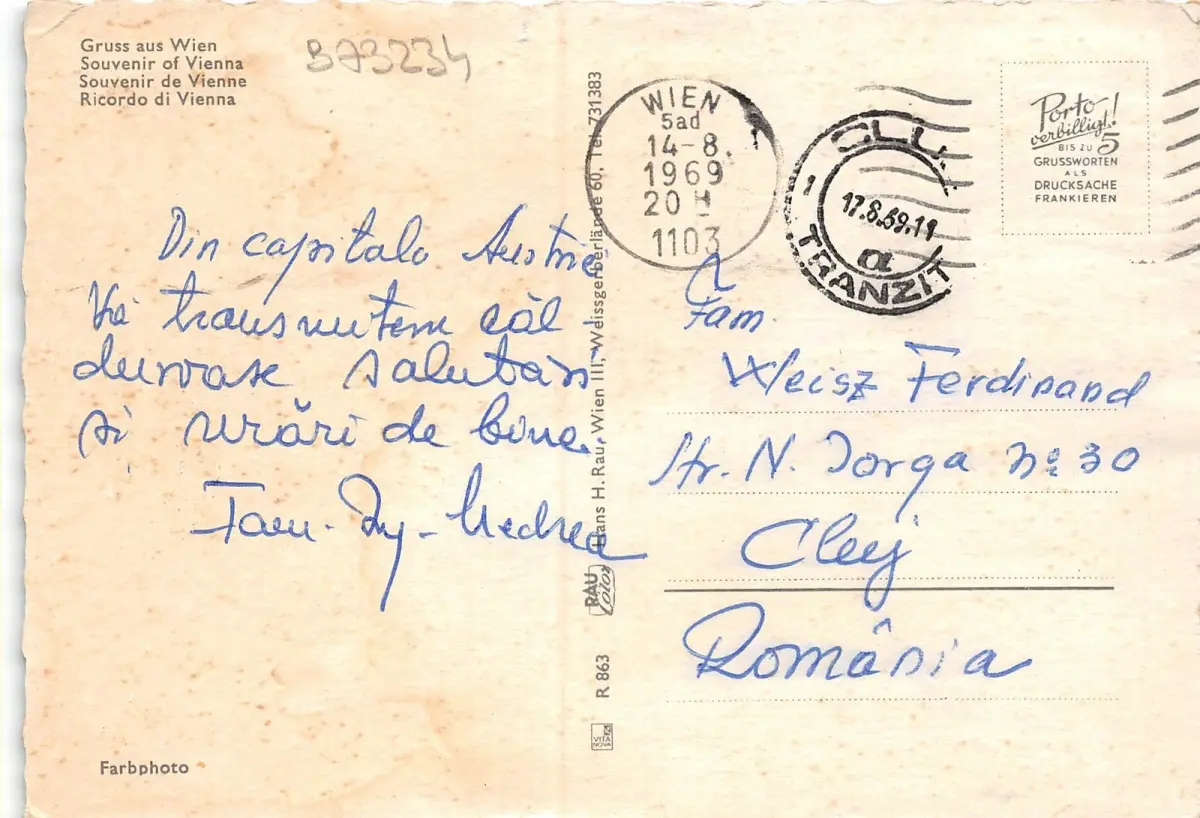 Gruss aus Wien
Souvenir of Vienna
Souvenir de Vienne
Ricordo di Vienna
BA3234
WIEN
5ad
14-8.
1969
20 H
1103
CLUJ
1
17.8.69.11
TRANZIT
Porto
verbilligt!
BIS ZU 5
GRUSSWORTEN
ALS
DRUCKSACHE
FRANKIEREN
Din capitala Austriei
Vă transmitem căl-
duroase salutări
și urări de bine.
Fam. Medrea
Fam.
Weisz Ferdinand
Str. N. Iorga No 30
Cluj
România
Hans H. Rau, Wien III, Weissgerberlände 60, Tel. 731383
RAU
Color
R 863
VITA
NOVA
Farbphoto